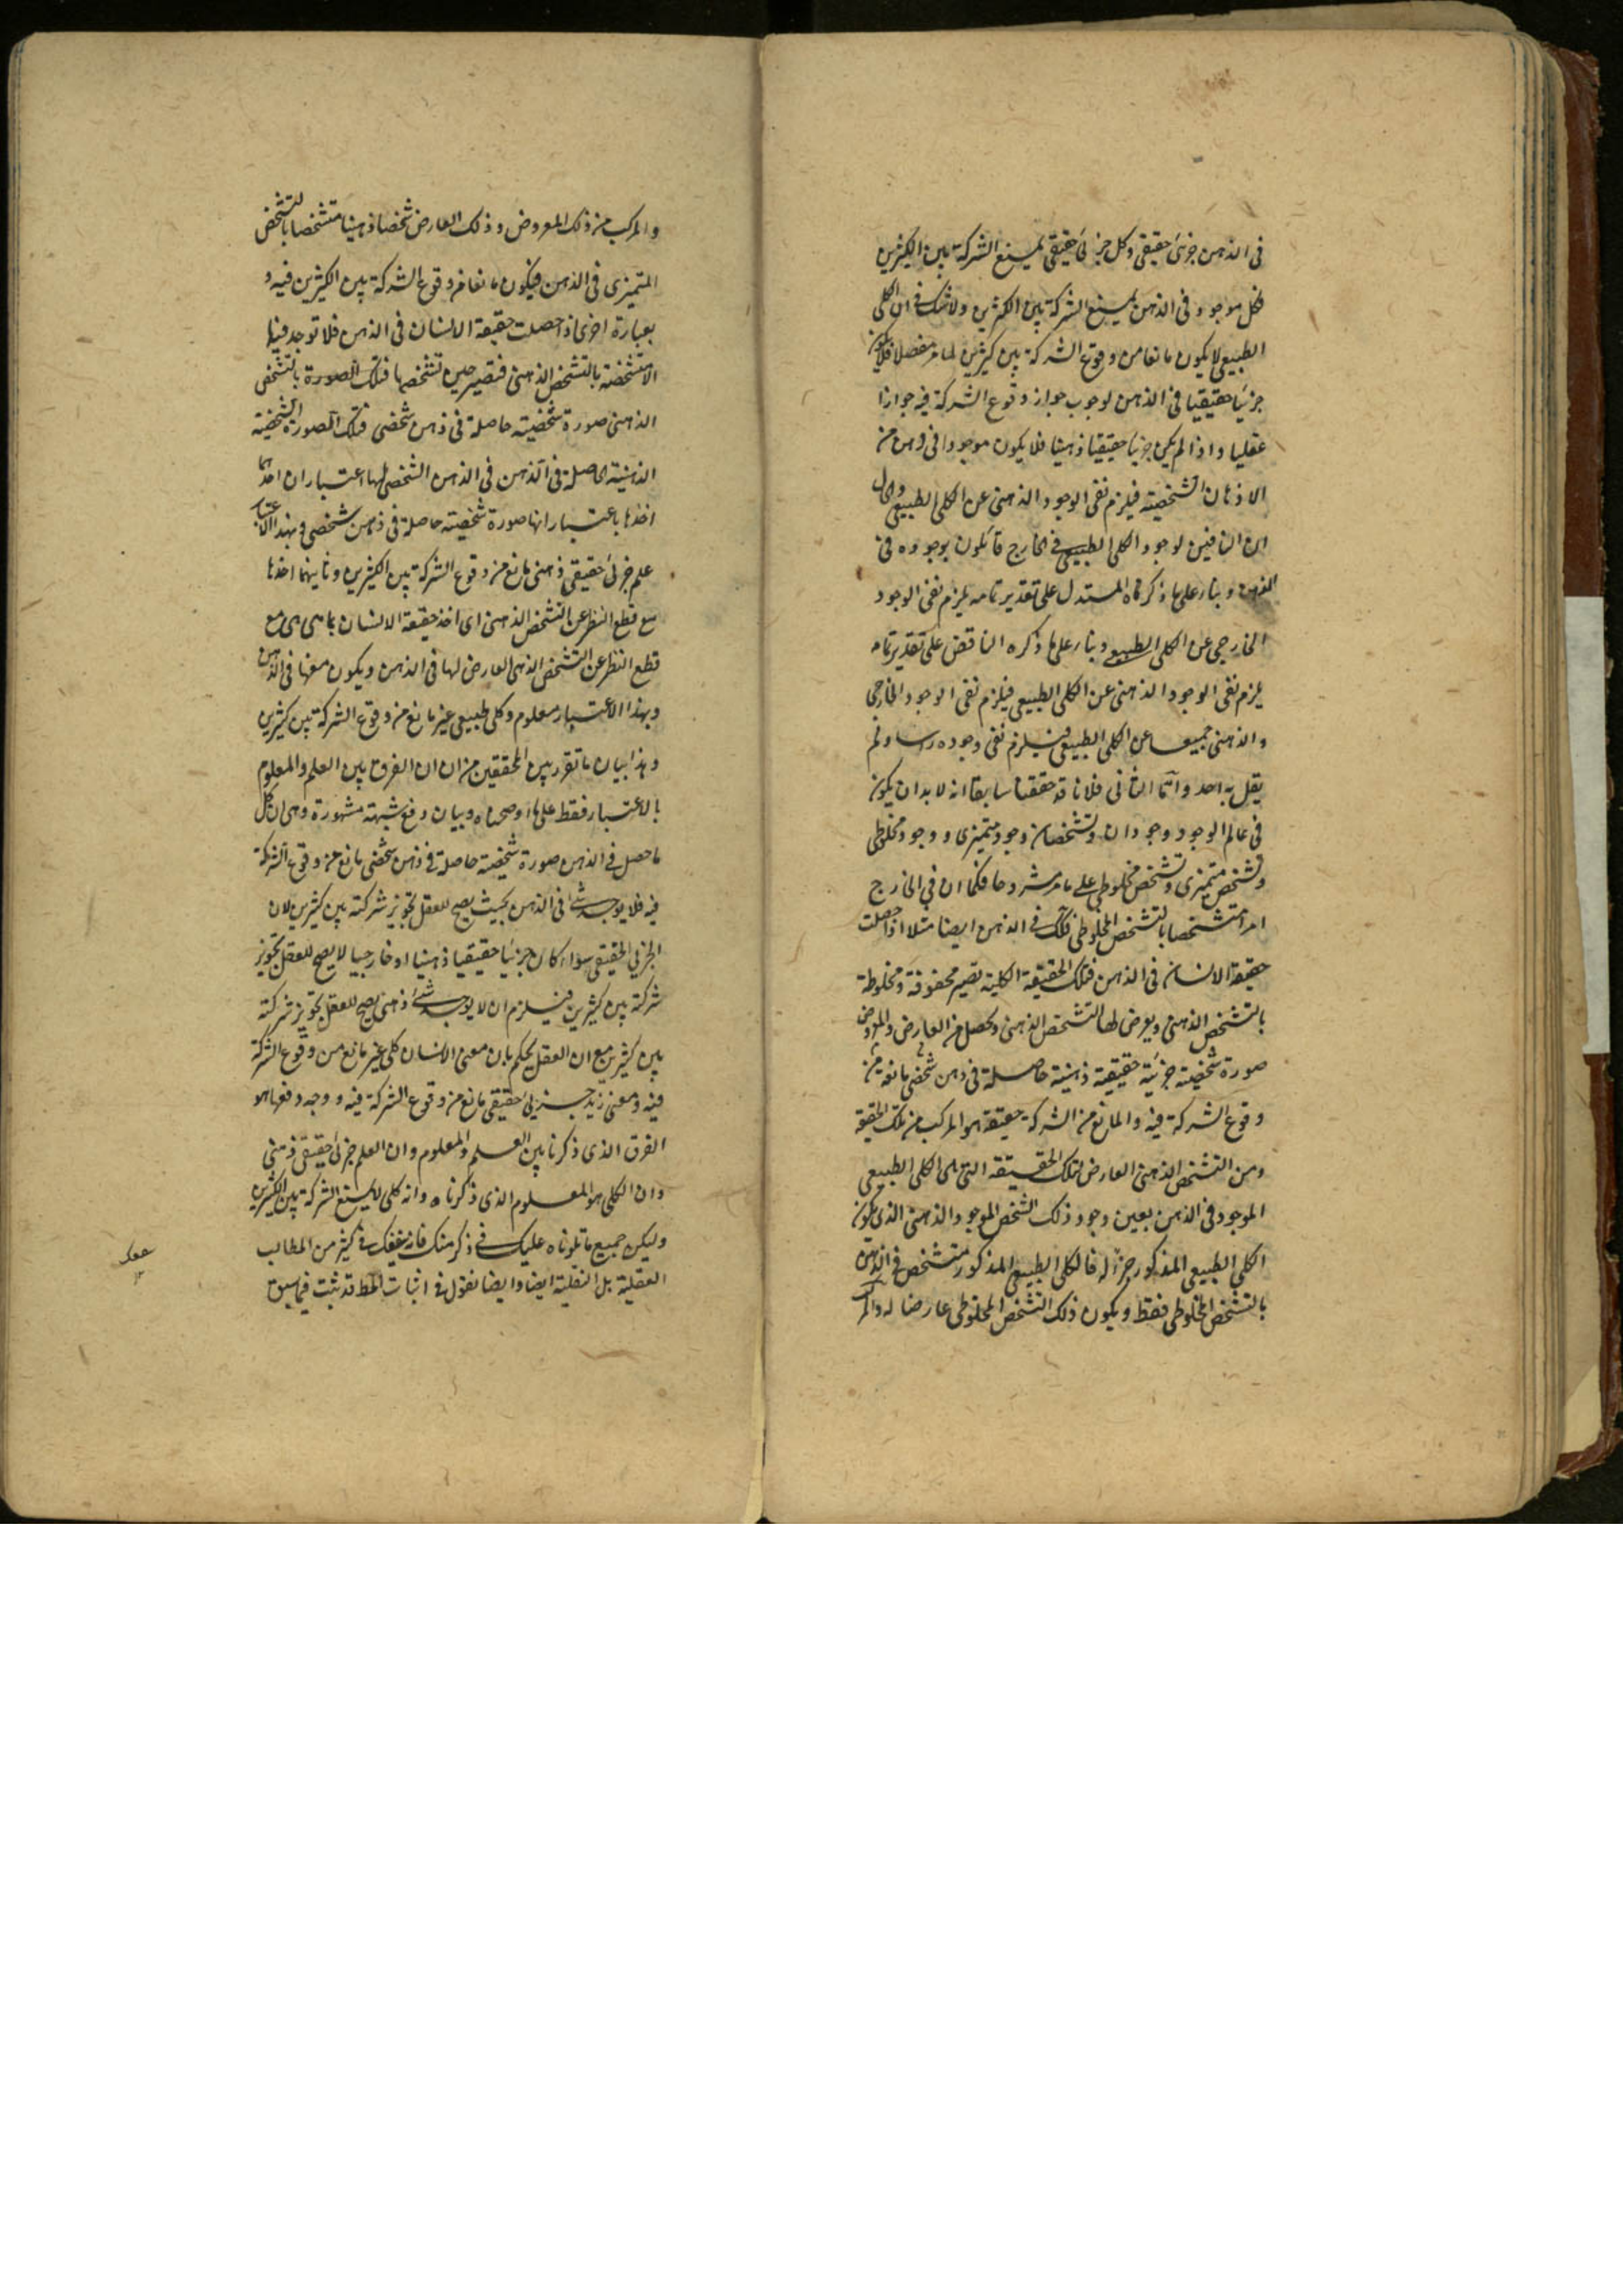 في الذهن جزئي حقيقي وكل جزئي حقيقي يمتنع الشركة بين الكثيرين
فكل موجود في الذهن يمتنع الشركة بين الكثيرين ولا شك في ان الكلي
الطبيعي لا يكون مانعا من وقوع الشركة بين كثيرين لما مر مفصلا فلا يكون
جزئيا حقيقيا في الذهن لوجوب جواز وقوع الشركة فيه جوازا
عقليا واذا لم يكن جزئيا حقيقيا ذهنيا فلا يكون موجودا في ذهن من
الاذهان الشخصية فيلزم نفي الوجود الذهني عن الكلي الطبيعي والحال
ان النافين لوجود الكلي الطبيعي في الخارج قائلون بوجوده في
الذهن وبناء على ما ذكرناه المستدل على تقدير تمامه يلزم نفي الوجود
الخارجي عن الكلي الطبيعي وبناء على ما ذكره الناقض على تقدير تمامه
يلزم نفي الوجود الذهني عن الكلي الطبيعي فيلزم نفي الوجود الخارجي
والذهني جميعا عن الكلي الطبيعي فيلزم نفي وجوده راسا ولم
يقل به احد واما الثاني فلانا قد حققنا سابقا انه لابد ان يكون
في عالم الوجود وجودان وتشخصان وجود متميزي ووجود مخلوطي
وتشخص متميزي وتشخص مخلوطي على ما مر مشروحا فكما ان في الخارج
امرا متشخصا بالتشخص المخلوطي فكذلك في الذهن ايضا مثلا اذا حصلت
حقيقة الانسان في الذهن فتلك الحقيقة الكلية تصير محفوفة ومخلوطة
بالتشخص الذهني ويعرض لها التشخص الذهني وحصل من العارض والمعروض
صورة شخصية جزئية حقيقية ذهنية حاصلة في ذهن شخصي مانعة من
وقوع الشركة فيه والمانع من الشركة حقيقة هو المركب من تلك الحقيقة
ومن التشخص الذهني العارض لتلك الحقيقة التي هي الكلي الطبيعي
الموجود في الذهن بعين وجود ذلك الشخص الموجود الذهني الذي يكون
الكلي الطبيعي المذكور جزأ له فالكلي الطبيعي المذكور متشخص في الذهن
بالتشخص المخلوطي فقط ويكون ذلك التشخص المخلوطي عارضا له والمركب
والمركب من ذلك المعروض وذلك العارض شخصا ذهنيا متشخصا بالتشخص
المتميزي في الذهن فيكون مانعا من وقوع الشركة بين الكثيرين فيه و
بعبارة اخرى اذا حصلت حقيقة الانسان في الذهن فلا توجد فيها
الا متشخصة بالتشخص الذهني فتصير حين تشخصها فتلك الصورة بالتشخص
الذهني صورة شخصية حاصلة في ذهن شخصي فتلك الصورة الشخصية
الذهنية الحاصلة في الذهن في الذهن الشخصي لها اعتباران احدهما
اخذها باعتبار انها صورة شخصية حاصلة في ذهن شخصي وبهذا الاعتبار
علم جزئي حقيقي ذهني مانع من وقوع الشركة بين الكثيرين وثانيهما اخذها
مع قطع النظر عن التشخص الذهني اي اخذ حقيقة الانسان بما هي هي مع
قطع النظر عن التشخص الذهني العارض لها في الذهن ويكون معها في الذهن
وبهذا الاعتبار معلوم وكلي طبيعي غير مانع من وقوع الشركة بين كثيرين
وهذا بيان ما تقرر بين المحققين من ان الفرق بين العلم والمعلوم
بالاعتبار فقط على ما اوضحناه وبيان دفع شبهة مشهورة وهي ان كل
ما حصل في الذهن صورة شخصية حاصلة في ذهن شخصي مانع من وقوع الشركة
فيه فلا يوجد شئ في الذهن بحيث يصح للعقل تجويز شركته بين كثيرين لان
الجزئي الحقيقي سواء كان جزئيا حقيقيا ذهنيا او خارجيا لا يصح للعقل تجويز
شركته بين كثيرين فيلزم ان لا يوجد شئ ذهني يصح للعقل تجويز شركته
بين كثيرين مع ان العقل يحكم بان معنى الانسان كلي غير مانع من وقوع الشركة
فيه ومعنى زيد جزئي حقيقي مانع من وقوع الشركة فيه ووجه دفعها هو
الفرق الذي ذكرنا بين العلم والمعلوم وان العلم جزئي حقيقي ذهني
وان الكلي هو المعلوم الذي ذكرناه وانه كلي لا يمتنع الشركة بين الكثيرين
وليكن جميع ما تلوناه عليك في ذكر منك فانه ينفعك في كثير من المطالب
العقلية بل النقلية ايضا وايضا نقول في اثبات المط قد ثبت فيما سبق